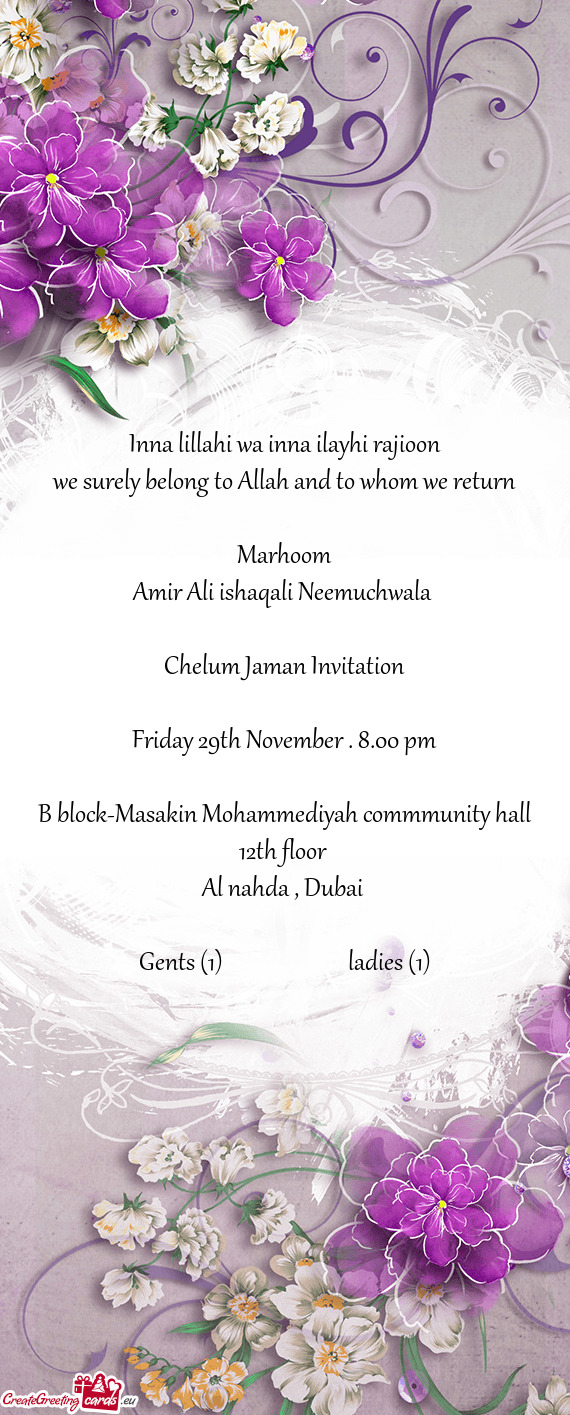 Inna lillahi wa inna ilayhi rajioon
we surely belong to Allah and to whom we return
Marhoom
Amir Ali ishaqali Neemuchwala
Chelum Jaman Invitation
Friday 29th November . 8.00 pm
B block-Masakin Mohammediyah commmunity hall
12th floor
Al nahda , Dubai
Gents (1) ladies (1)
CreateGreeting cards .eu